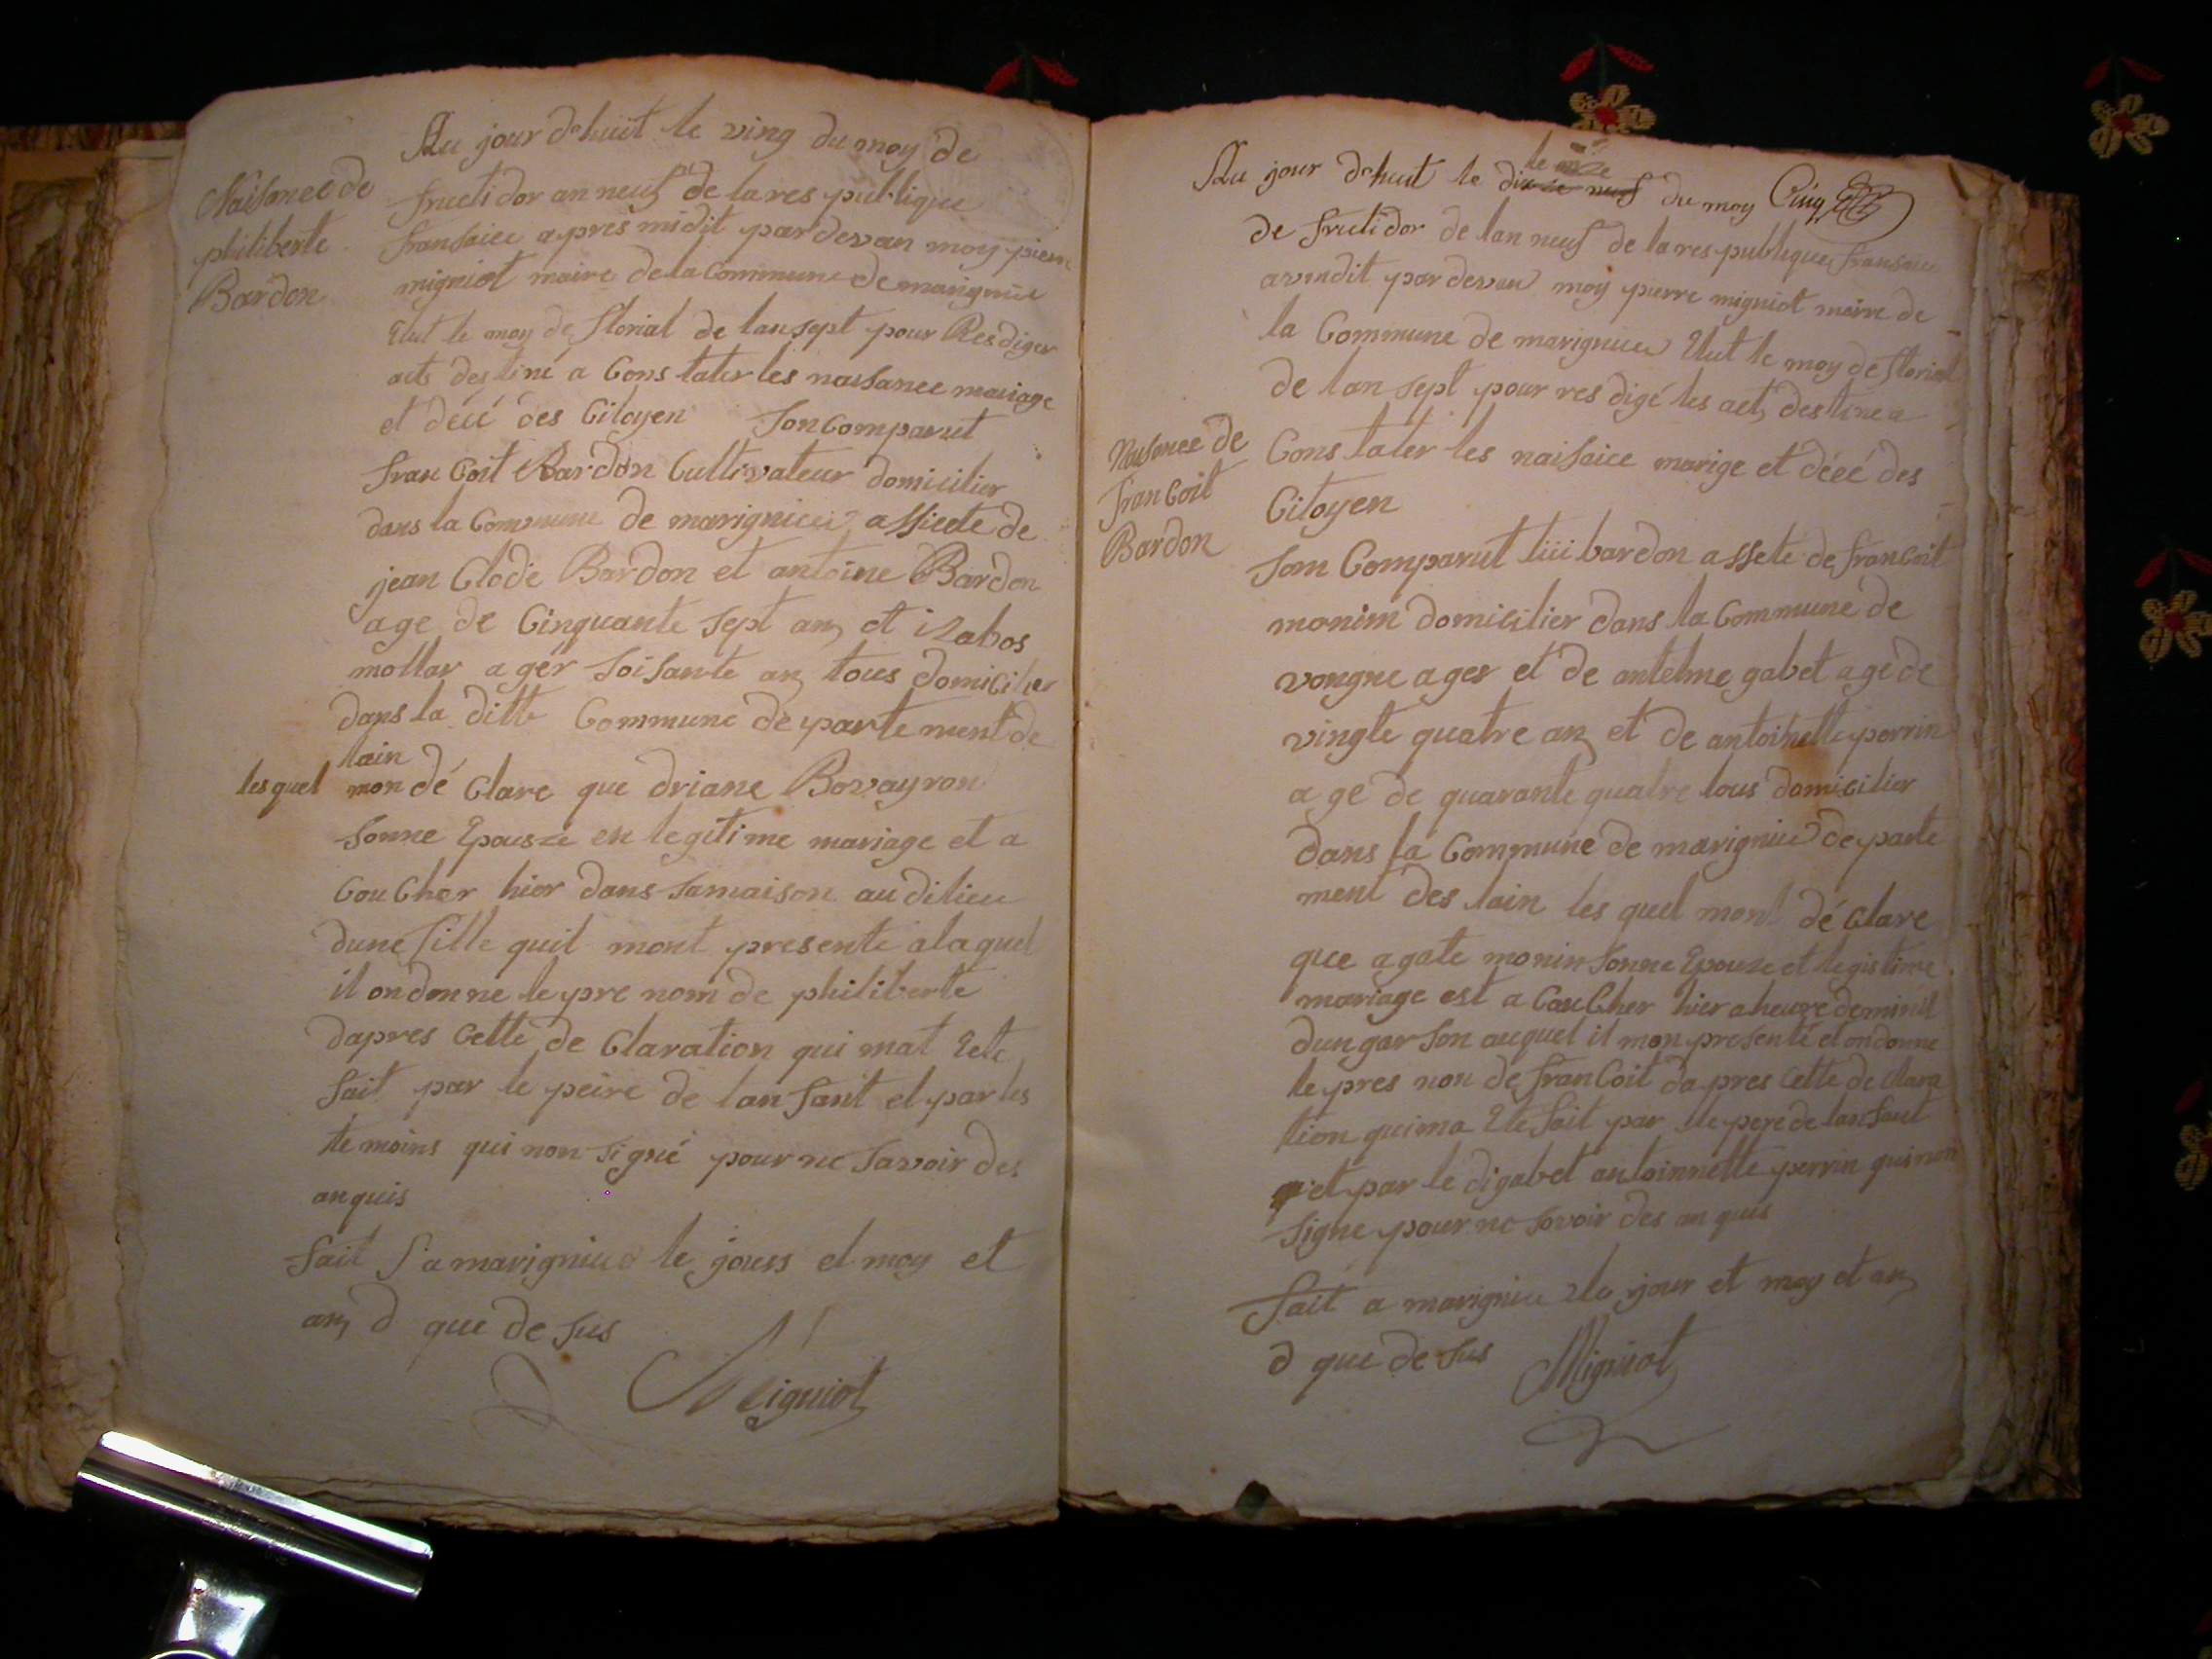 Naisance de
philiberte
Bardon
Au jour dhuit le ving du moy de
fructidor an neuf de la res publique
fransaice apres midit par devan moy pierre
migniot maire de la Commune de marignieu
Elut le moy de florial de lan sept pour Resdiger
acts destiné a Constater les naisance mariage
et décé des Citoyen Son comparut
fran Coit Bardon Cultivateur domicilier
dans la Commune de marignieu assicte de
jean Clode Bardon et antoine Bardon
age de Cinquante sept an et izabos
mollar ager soisante an tous domicilier
dans la ditte Commune de parte ment de
lain
lesquel mon dé Clare que driane Bovayron
sonne Epousze en legitime mariage et a
Cou Cher hier dans samaison au dilieu
dune fille quil mont presente a la quel
il on donne le pre nom de philiberte
dapres Cette de Claration qui mat Eete
fait par le peire de lan fant et par les
te moins qui non signé pour ne savoir des
anquis
fait a marignieu le jouss et moy et
an d que de sus
Migniot
Cinq
Au jour dehuit le dix neuf le onze du moy
de fructidor de lan neuf de la res publique fransaice
avendit par devan moy pierre migniot maire de
la Commune de marignieu Elut le moy de florial
de lan sept pour res digé les act destine a
Naisance de
fran Coit
Bardon
Cons tater les naisaice marige et décé des
Citoyen
Som Comparut bardon assete de francoit
monim domicilier dans la Commune de
vongne ages et de antelme gabet age de
vingte quatre an et de antoinette perrin
age de quarante quatre tous domicilier
dans la Commune de marignieu de parte
ment des lain les quel mont dé Clare
que agate monin sonne Epouze et legistime
mariage est a CouCher hier a heure deminuit
dun garson auquel il mon presenté et on donne
le pres non de fran Coit da pres Cette de Clara
tion quima Ete fait par le pere de lanfant
et par le di gabet antoinnette perrin qui non
signe pour ne savoir des an quis
fait a marignieu le jour et moy et an
d que de sus
Migniot